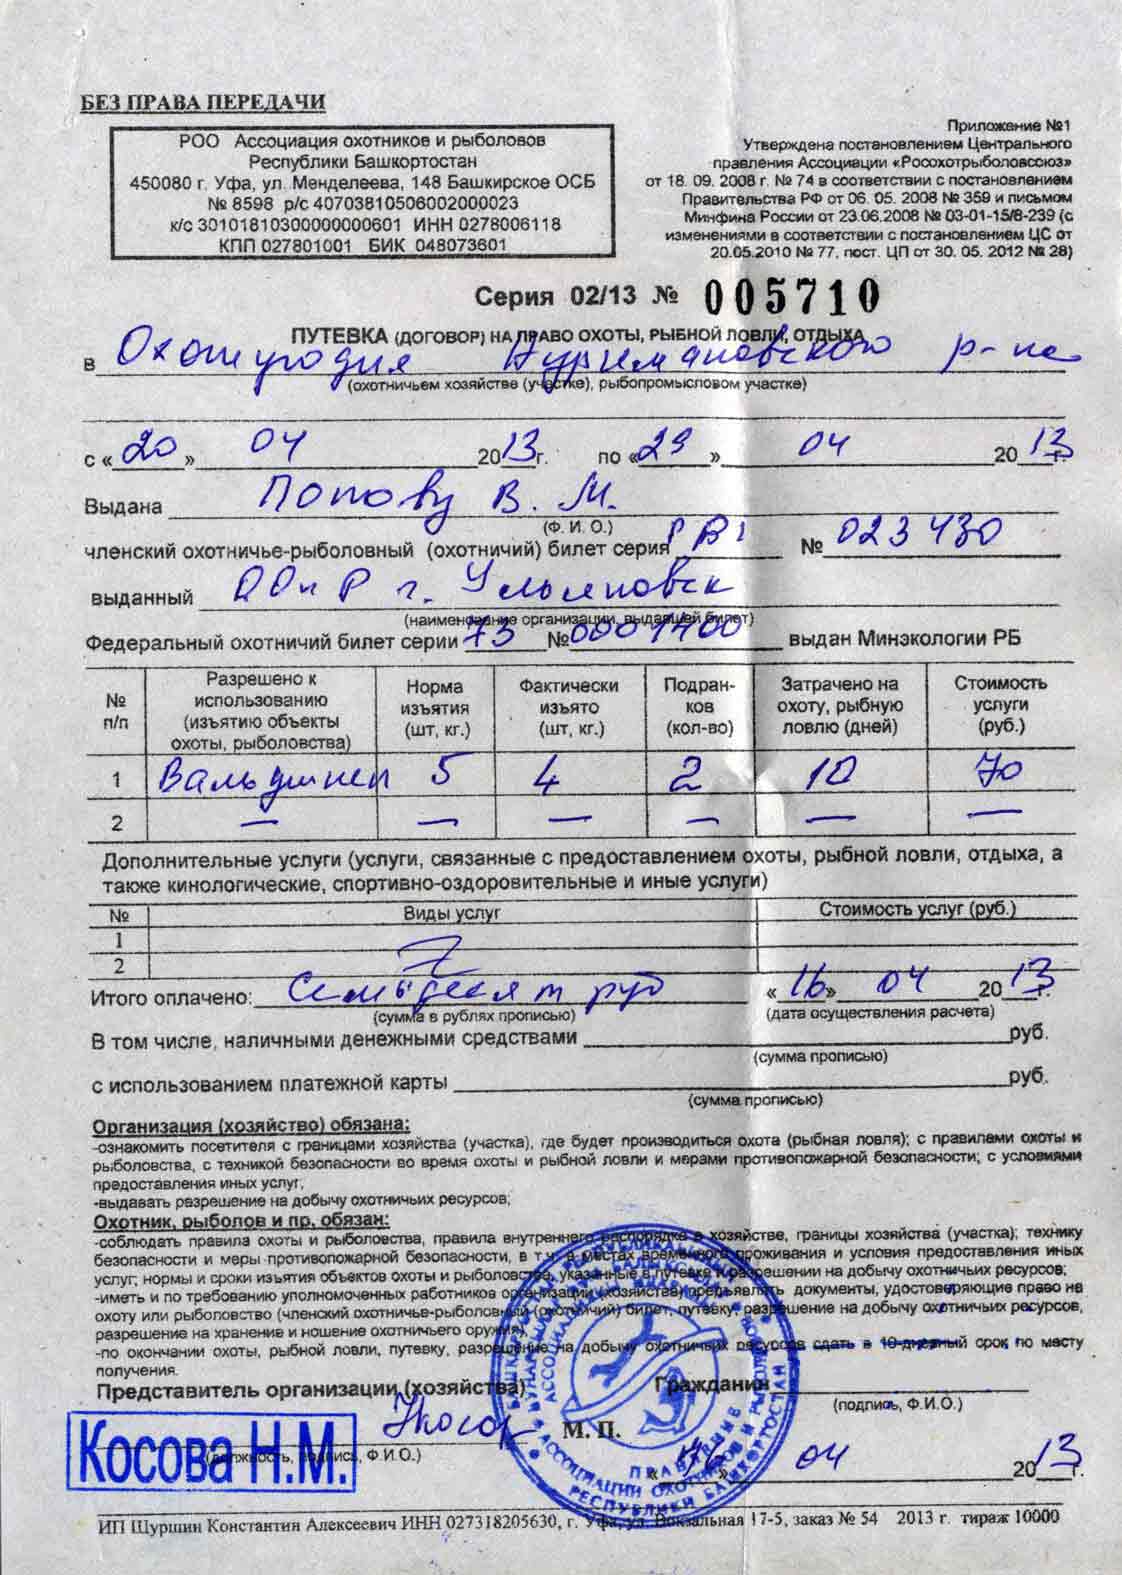 БЕЗ ПРАВА ПЕРЕДАЧИ
РОО Ассоциация охотников и рыболовов
Республики Башкортостан
450080 г. Уфа, ул. Менделеева, 148 Башкирское ОСБ
№ 8598 р/с 40703810506002000023
к/с 30101810300000000601 ИНН 0278006118
КПП 027801001 БИК 048073601
Приложение №1
Утверждена постановлением Центрального
правления Ассоциации «Росохотрыболовсоюз»
от 18. 09. 2008 г. № 74 в соответствии с постановлением
Правительства РФ от 06. 05. 2008 № 359 и письмом
Минфина России от 23.06.2008 № 03-01-15/8-239 (с
изменениями в соответствии с постановлением ЦС от
20.05.2010 № 77, пост. ЦП от 30. 05. 2012 № 28)
Серия 02/13 № 005710
ПУТЕВКА (ДОГОВОР) НА ПРАВО ОХОТЫ, РЫБНОЙ ЛОВЛИ, ОТДЫХА
в Охотугодия Нуримановского р-на
(охотничьем хозяйстве (участке), рыбопромысловом участке)
с «20» 04 2013г. по «29» 04 2013г.
Выдана Попову В. М.
(Ф. И. О.)
членский охотничье-рыболовный (охотничий) билет серия № 023430
выданный ООиР г. Ульяновск
(наименование организации, выдавшей билет)
Федеральный охотничий билет серии 73 № 0001400 выдан Минэкологии РБ
№ п/п Разрешено к использованию (изъятию объекты охоты, рыболовства) Норма изъятия (шт, кг.) Фактически изъято (шт, кг.) Подранков (кол-во) Затрачено на охоту, рыбную ловлю (дней) Стоимость услуги (руб.)
1 Вальдшнеп 5 4 2 10 70
2 — — — — — —
Дополнительные услуги (услуги, связанные с предоставлением охоты, рыбной ловли, отдыха, а
также кинологические, спортивно-оздоровительные и иные услуги)
№ Виды услуг Стоимость услуг (руб.)
1
2
Итого оплачено: Семьдесят руб «16» 04 2013г.
(сумма в рублях прописью) (дата осуществления расчета)
В том числе, наличными денежными средствами руб.
(сумма прописью)
с использованием платежной карты руб.
(сумма прописью)
Организация (хозяйство) обязана:
-ознакомить посетителя с границами хозяйства (участка), где будет производиться охота (рыбная ловля); с правилами охоты и
рыболовства, с техникой безопасности во время охоты и рыбной ловли и мерами противопожарной безопасности; с условиями
предоставления иных услуг;
-выдавать разрешение на добычу охотничьих ресурсов;
Охотник, рыболов и пр. обязан:
-соблюдать правила охоты и рыболовства, правила внутреннего распорядка в хозяйстве, границы хозяйства (участка); технику
безопасности и меры противопожарной безопасности, в т.ч. в местах временного проживания и условия предоставления иных
услуг; нормы и сроки изъятия объектов охоты и рыболовства, указанные в путевке и разрешении на добычу охотничьих ресурсов;
-иметь и по требованию уполномоченных работников организации (хозяйства) предъявлять документы, удостоверяющие право на
охоту или рыболовство (членский охотничье-рыболовный (охотничий) билет, путевку, разрешение на добычу охотничьих ресурсов,
разрешение на хранение и ношение охотничьего оружия),
-по окончании охоты, рыбной ловли, путевку, разрешение на добычу охотничьих ресурсов сдать в 10-дневный срок по месту
получения.
Представитель организации (хозяйства) Гражданин
(подпись, Ф.И.О.)
М. П.
Косова Н.М.
(должность, подпись, Ф.И.О.)
«16» 04 2013г.
ПРАВЛЕНИЕ
АССОЦИАЦИИ ОХОТНИКОВ И РЫБОЛОВОВ
РЕСПУБЛИКИ БАШКОРТОСТАН
ИП Шуршин Константин Алексеевич ИНН 027318205630, г. Уфа, ул. Вокзальная 17-5, заказ № 54 2013 г. тираж 10000